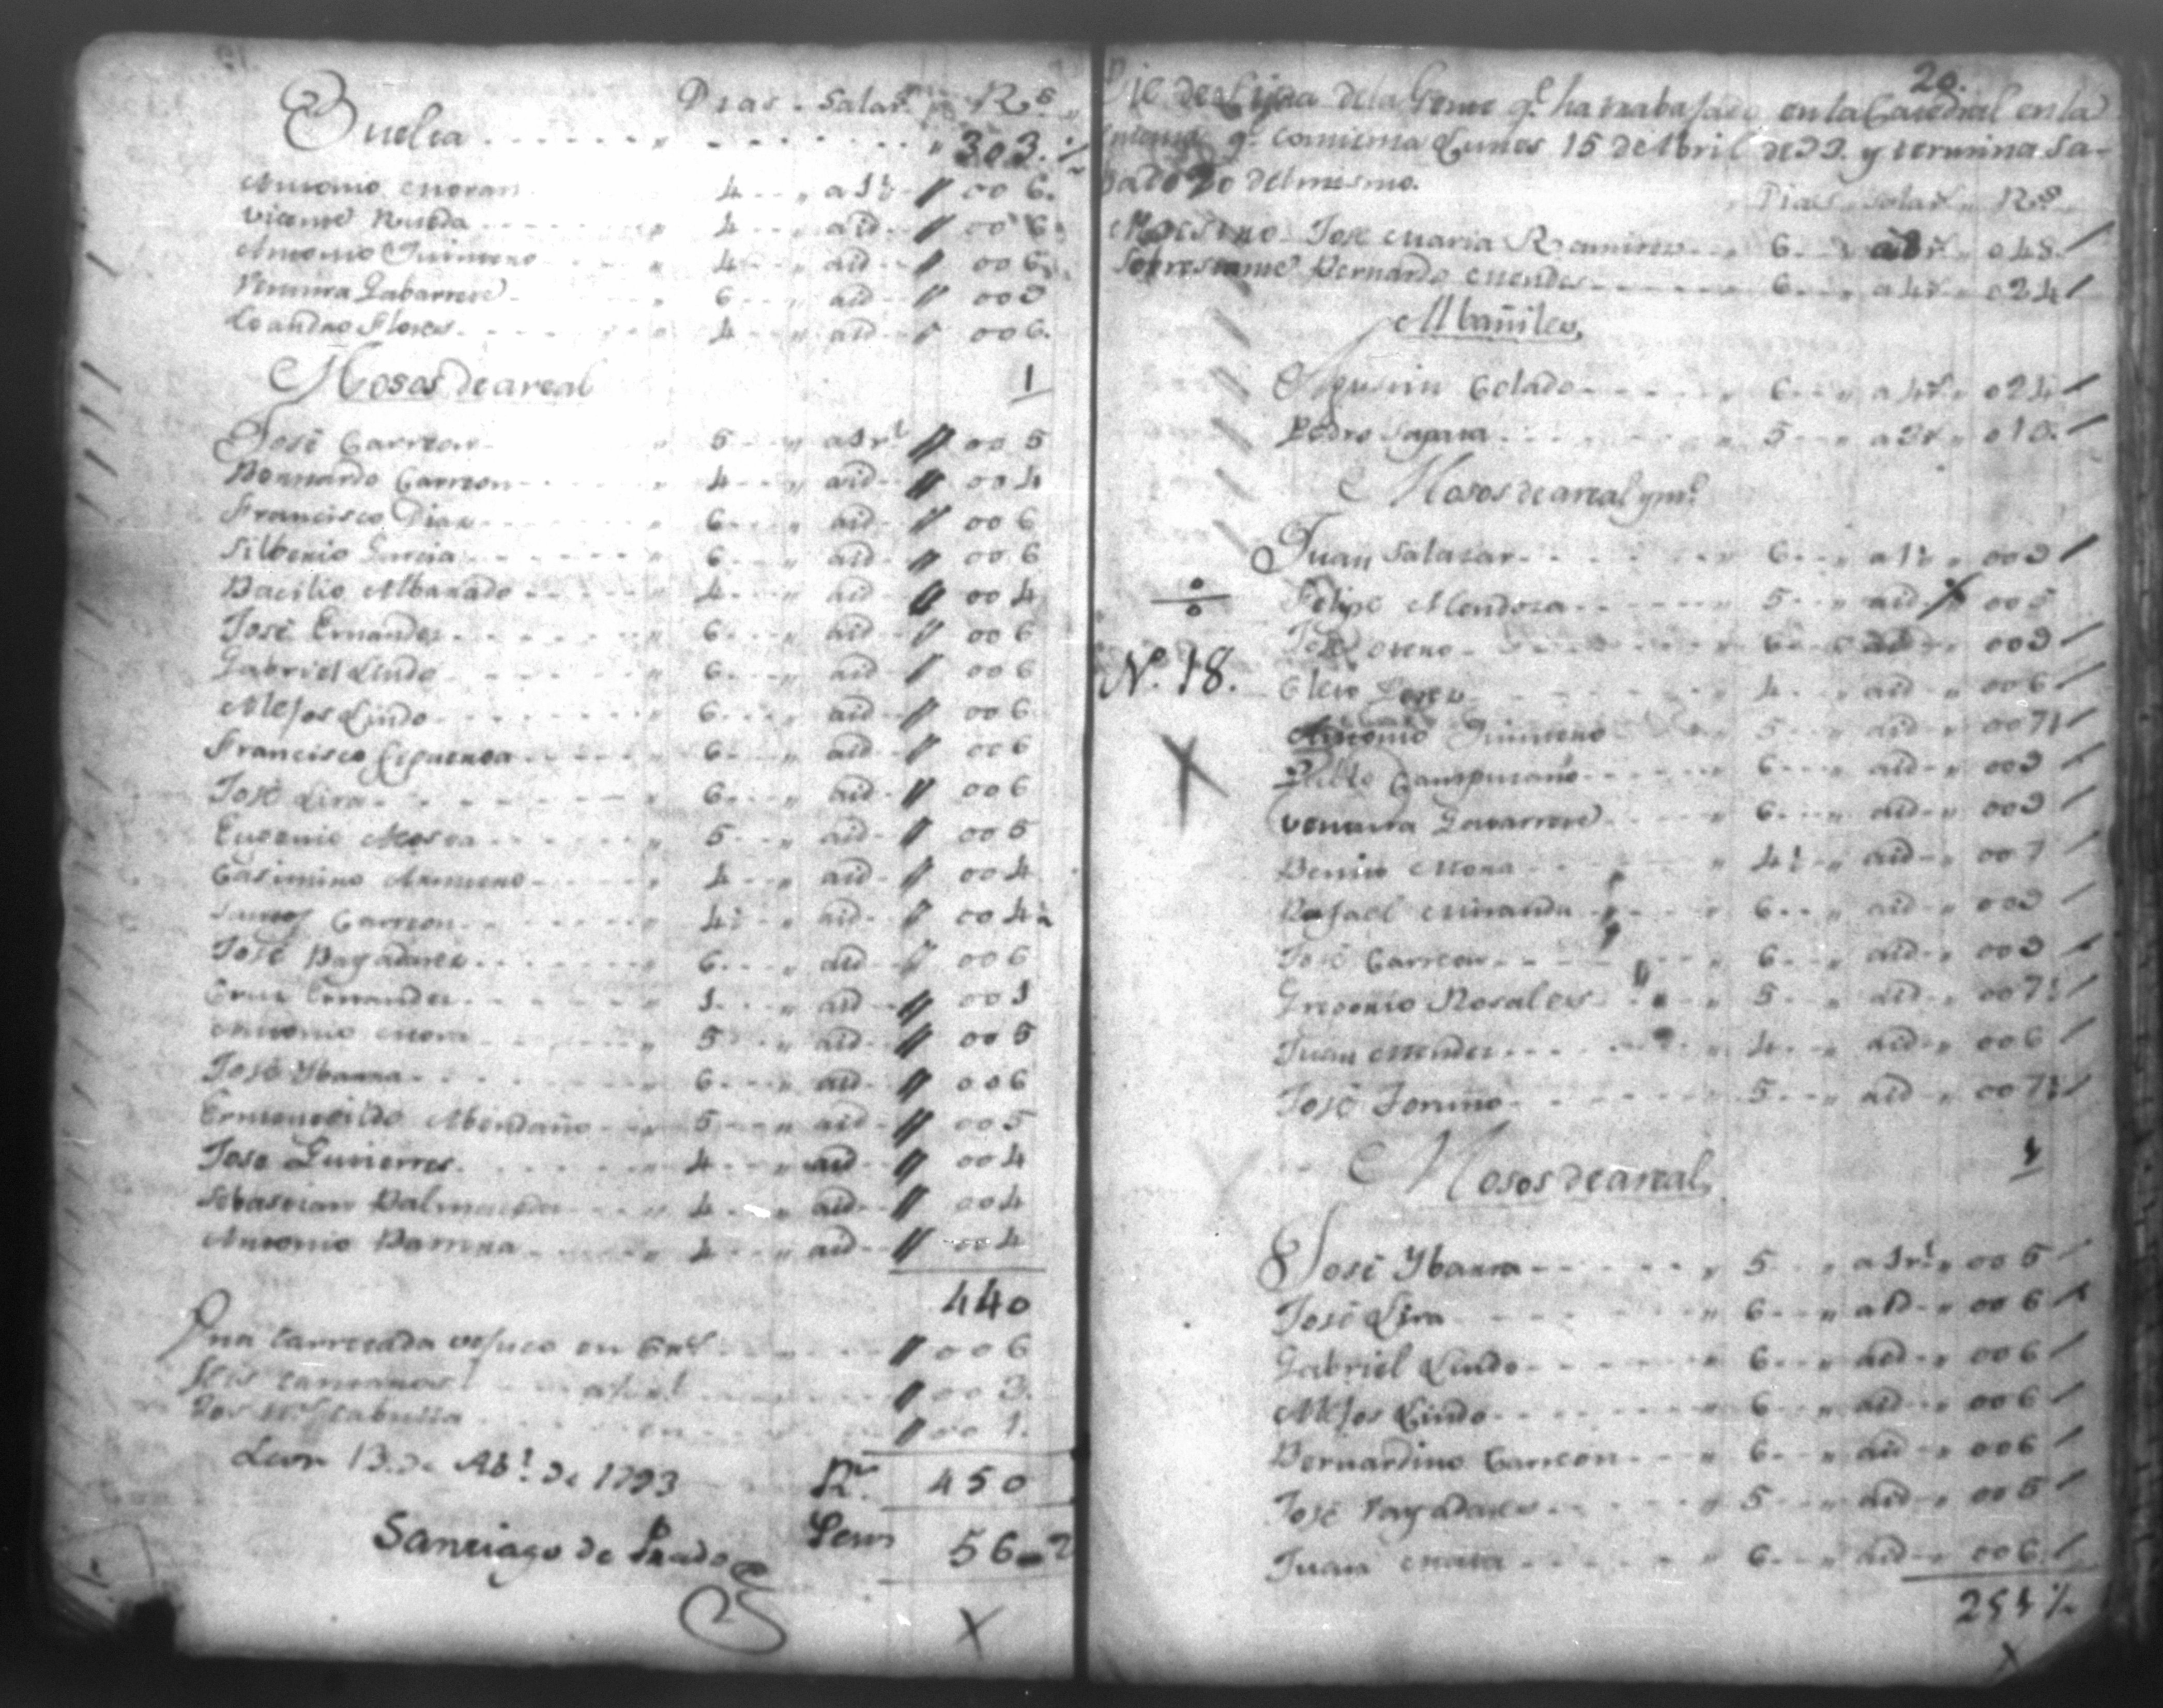 Buelta Dias Salar.s R.s
303 ½
Antonio Moran 4 a 1½ 006.
Vicente Rueda 4 aid. 006.
Antonio Quinteno 4 aid. 006.
Ventura Gabarrete 6 aid. 009
Leandro Flores 4 aid. 006.
Mosos de a real
José Carreon 5 a 1 r.l 005
Bernardo Carreon 4 aid. 004
Francisco Dias 6 aid. 006
Silberio Garcia 6 aid. 006
Bacilio Albarado 4 aid. 004
José Ernandes 6 aid. 006
Gabriel Lindo 6 aid. 006
Alejos Lindo 6 aid. 006
Francisco 6 aid. 006
José Lira 6 aid. 006
Eugenio 5 aid. 005
Casimiro 4 aid. 004
Santos Carreon 4½ aid. 004½
José Bagadares 6 aid. 006
Cruz Ernandes 1 aid. 001
Antonio Mora 5 aid. 005
José Ybarra 6 aid. 006
Ermenegildo Abendaño 5 aid. 005
Jose Gutierres 4 aid. 004
Sebastian Balmaceda 4 aid. 004
Antonio Barrera 4 aid. 004
440
Una carretada vejuco en 6 r.s 006
003.
001.
Leon 13 de Ab.l de 1793 R.s 450
Santiago de Prado Pesos 56 = 2
20.
de la Gente q.e ha trabajado en la Catedral en la
q.e comiensa Lunes 15 de Abril de 93. y termina Sa-
bado 20 del mismo.
Dias Salar.s R.s
Maestro Jose Maria Ramires 6 a 8 r.s 048
Sobrestante Bernardo Mendes 6 a 4 r.s 024
Albañiles
Agustin Colado 6 a 4 r.s 024
Pedro 5 a 3 r.s 015
Mosos de a real y m.o
Juan Salasar 6 a 1½ 009
Felipe Mendosa 5 aid.
José Moreno 6 aid. 009
N.o 18.
4 aid. 006
Antonio Quinteno 5 aid. 007½
Pablo Campusano 6 aid. 009
Ventura Gavarrete 6 aid. 009
Benito Mora 4½ aid. 007
Rafael Miranda 6 aid. 009
José Carreon 6 aid. 009
Gregorio Rosales 5 aid. 007½
Juan Mendes 4 aid. 006
José Toruño 5 aid. 007½
Mosos de a real
José Ybarra 5 a 1 r.l 005
José Lira 6 aid. 006
Gabriel Lindo 6 aid. 006
Alejos Lindo 6 aid. 006
Bernardino Carreon 6 aid. 006
José Bagadares 5 aid. 005
Juan Mata 6 aid. 006